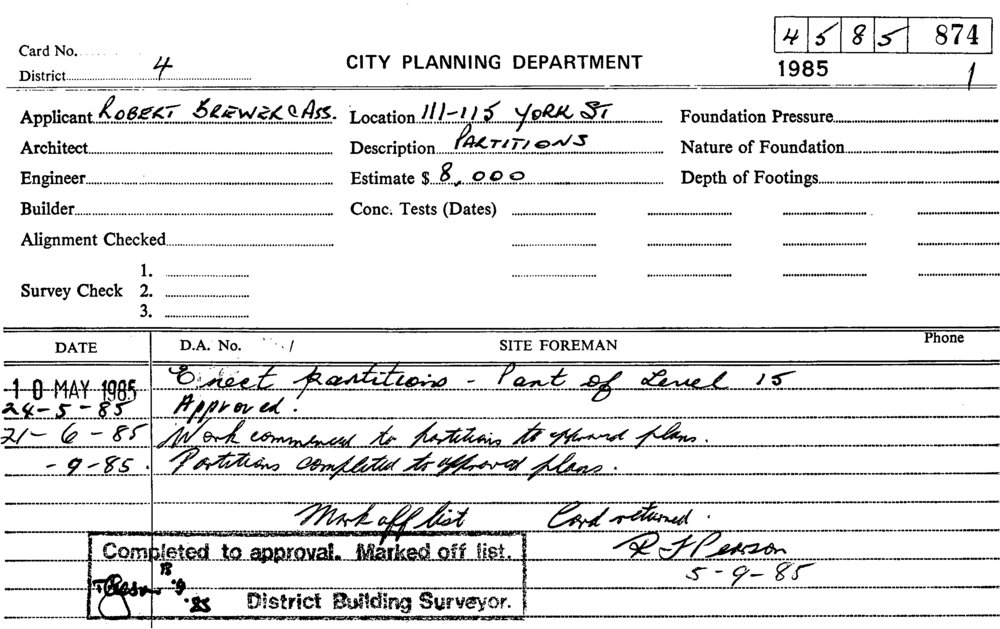 4585 874
Card No.
1985
District 4
CITY PLANNING DEPARTMENT
1
Applicant ROBERT BREWER & ASS. Location 111-115 YORK ST Foundation Pressure
Architect Description PARTITIONS Nature of Foundation
Engineer Estimate $ 8,000 Depth of Footings
Builder Conc. Tests (Dates)
Alignment Checked
1.
Survey Check 2.
3.
DATE D.A. No. SITE FOREMAN Phone
10 MAY 1985 Erect partitions - Part of Level 15
24-5-85 Approved.
21-6-85 Work commenced to partitions to approved plans.
-9-85. Partitions completed to approved plans.
Mark off list Card returned.
Completed to approval. Marked off list. R J Pearson
18 5-9-85
.9
.85 District Building Surveyor.